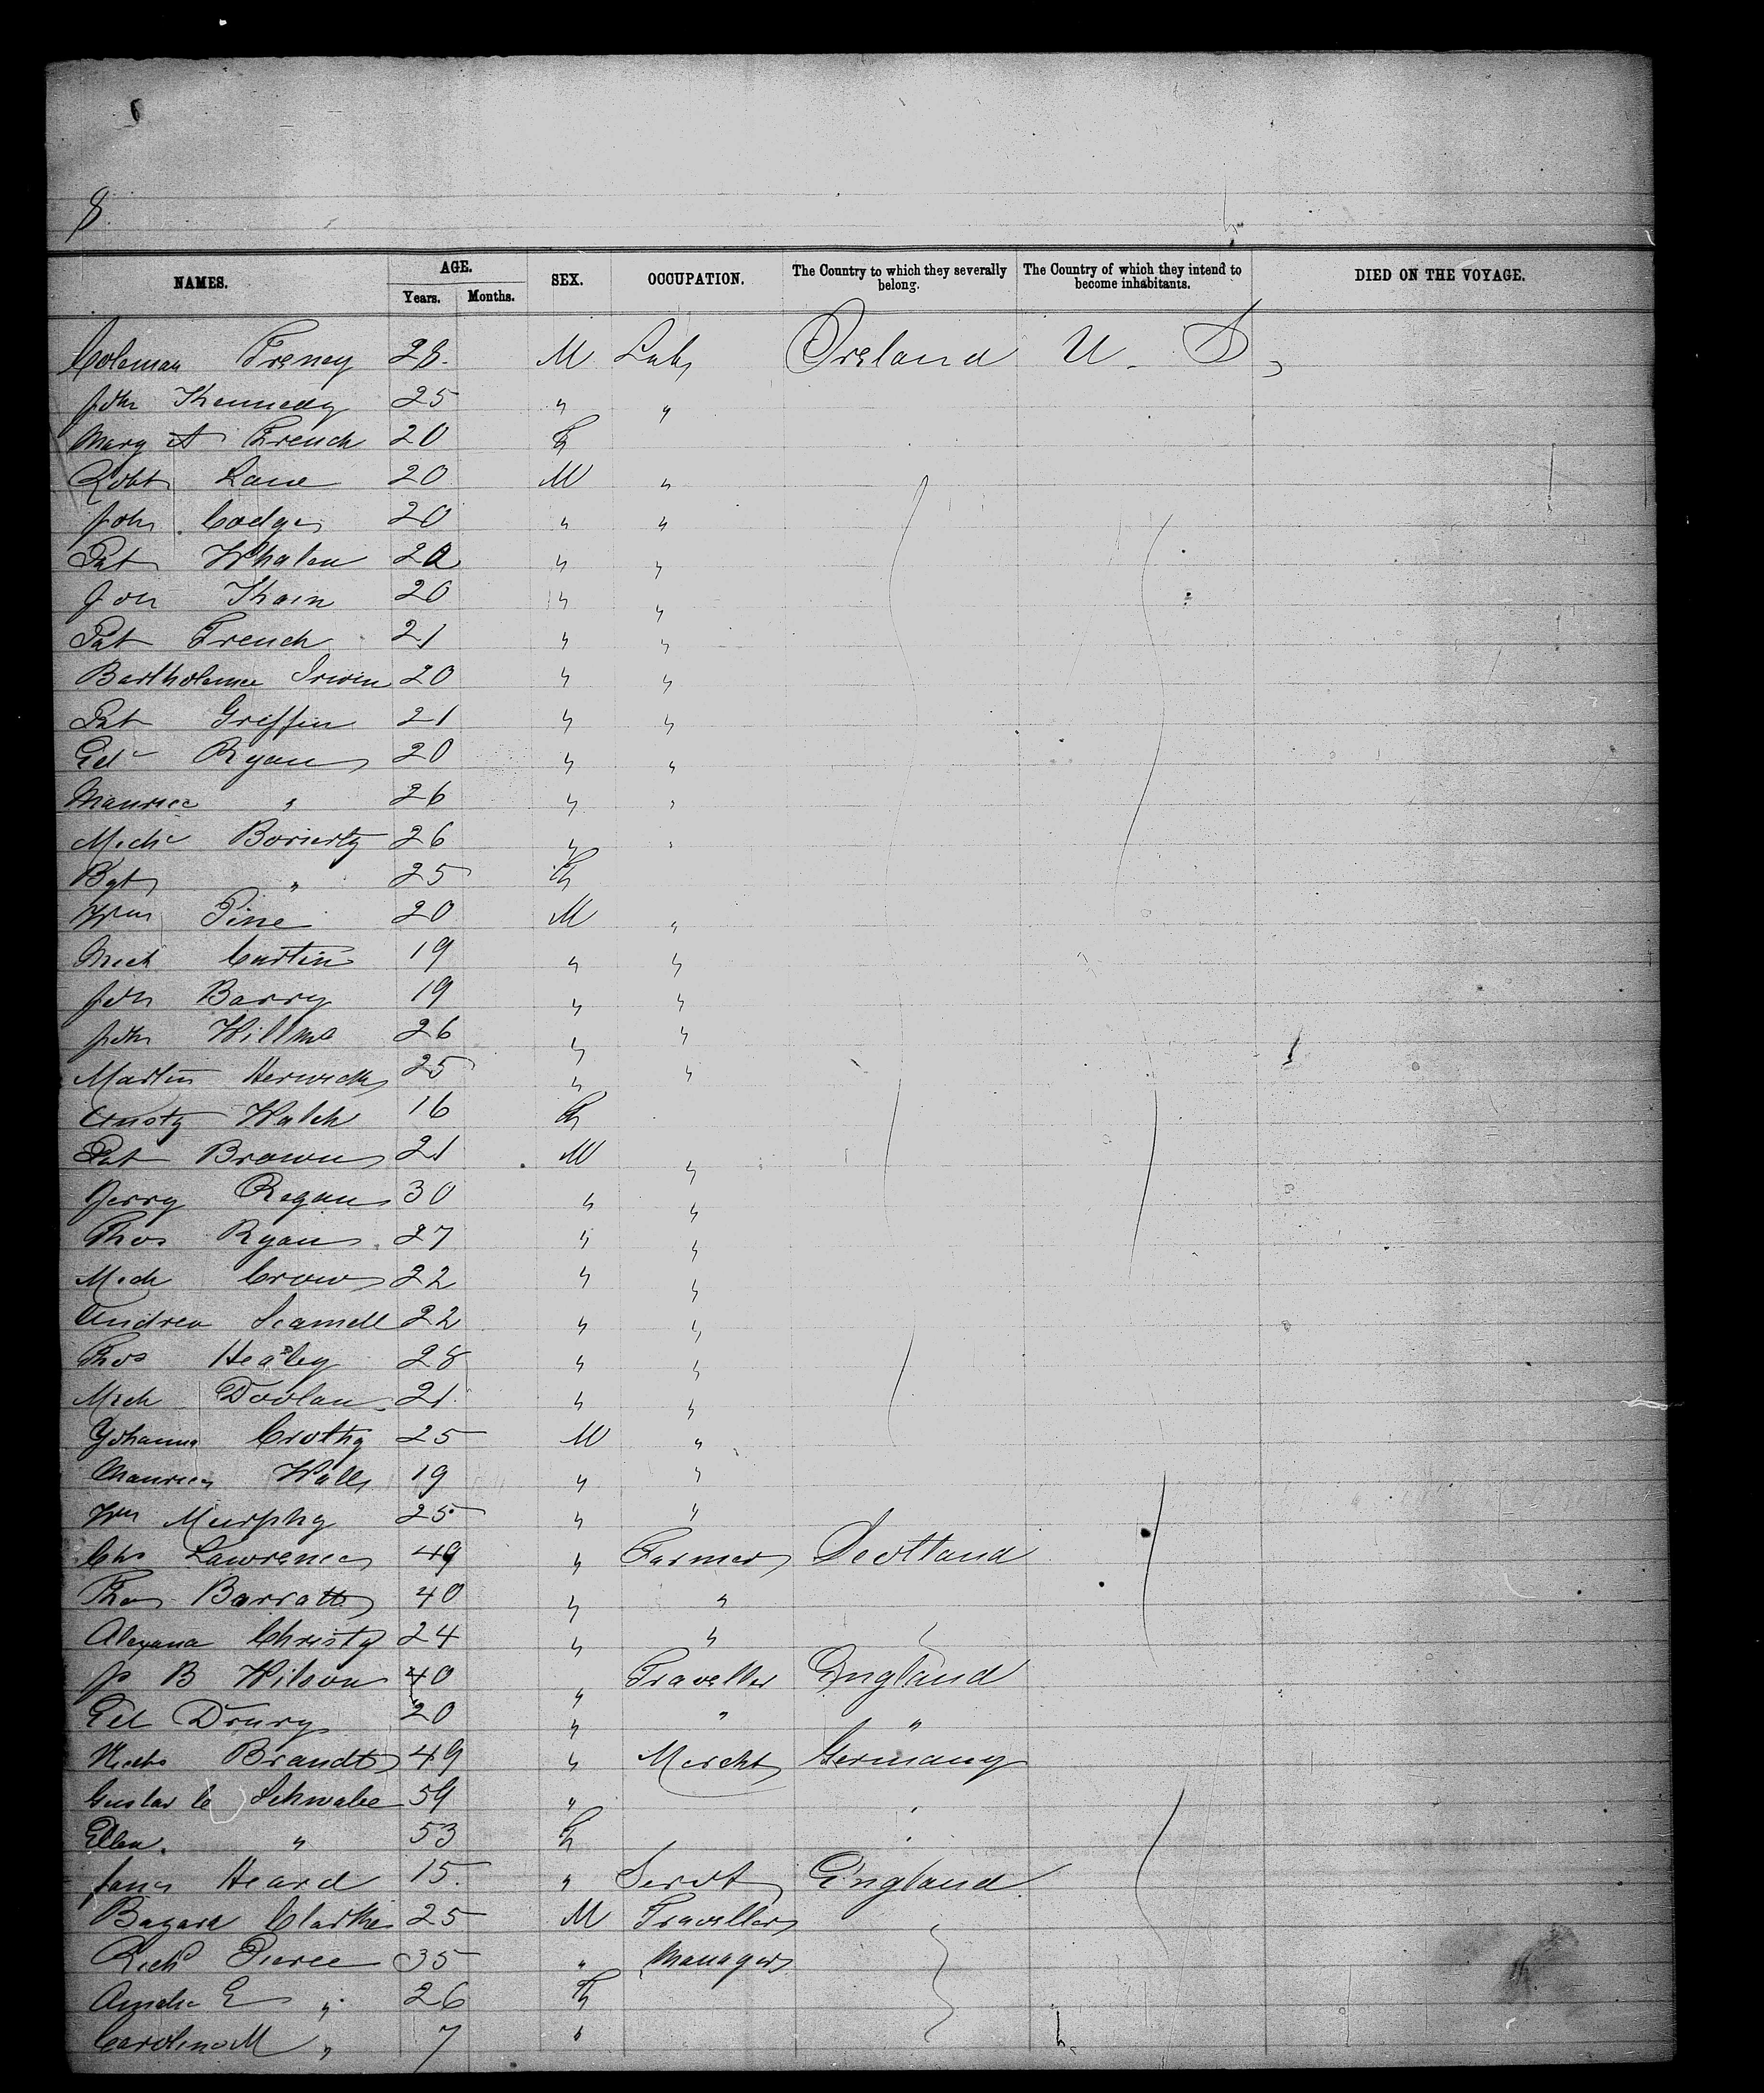 6
8
NAMES. AGE. SEX. OCCUPATION. The Country to which they severally belong. The Country of which they intend to become inhabitants. DIED ON THE VOYAGE.
Years. Months.
Coleman Freney 28 M Labr Ireland U. S,
John Kennedy 25 " "
Mary A French 20 F
Robt Lane 20 M "
John 20 " "
Pat Whalen 20 " "
Jon 20 " "
Pat French 21 " "
Bartholemee Irwin 20 " "
Pat Griffin 21 " "
Edd Ryan 20 " "
Maurice " 26 " "
Michl 26 " "
Bgt " 25 F
Wm Pine 20 M "
Mich Curtin 19 " "
John Barry 19 " "
John Willms 26 " "
Martin Herwick 25 " "
Ansty Walch 16 F
Pat Brown 21 M "
Jerry Regan 30 " "
Thos Ryan 27 " "
Mich Crow 22 " "
Andrew Scamell 22 " "
Thos Healey 28 " "
Mich Doolan 21 " "
Johanna Crothy 25 M "
Maurice Walls 19 " "
Wm Murphy 25 " "
Chs Lawrence 49 " Farmer Scotland
Thos Barratt 40 " "
Christy 24 " "
J B Wilson 40 " Traveller England
Ed Drury 20 " " "
Brandt 49 " Mercht Germany
Gustav C Schwabe 59 " "
Ellen " 53 F "
Heard 15 " Servt England
Clarke 25 M Traveller
Richd Pierce 35 " Manager
Amelia E " 26 F
Caroline M " 7 "